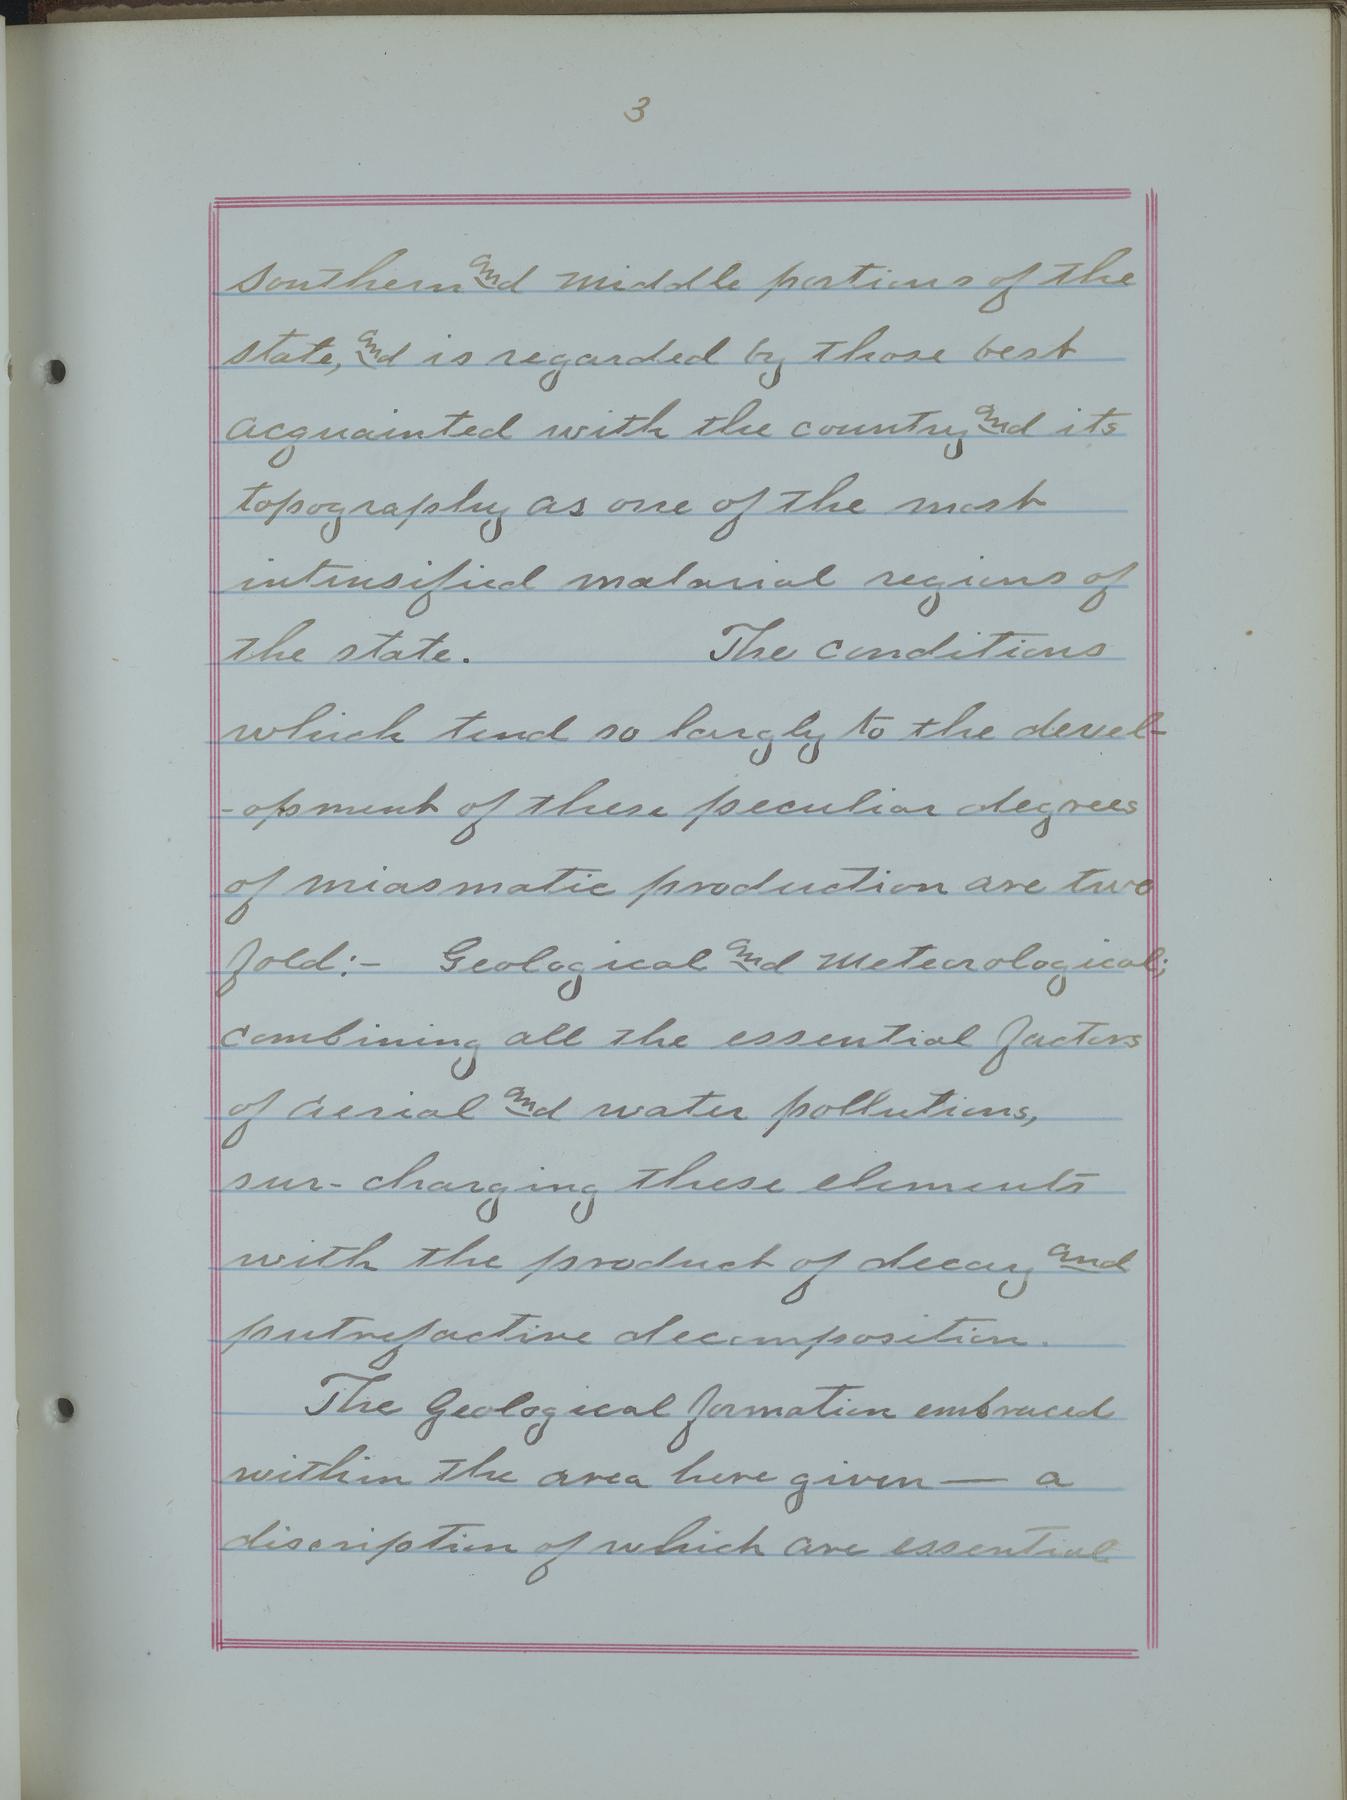 3
Southern and middle portions of the
state, and is regarded by those best
acquainted with the country and its
topography as one of the most
intensified malarial regions of
the state. The conditions
which tend so largly to the devel-
-opment of these peculiar degrees
of miasmatic production are two
fold:- Geological and Meteorological;
combining all the essential factors
of aerial and water pollutions,
sur-charging these elements
with the product of decay and
putrefactive decomposition.
The Geological formation embraced
within the area here given — a
discription of which are essential